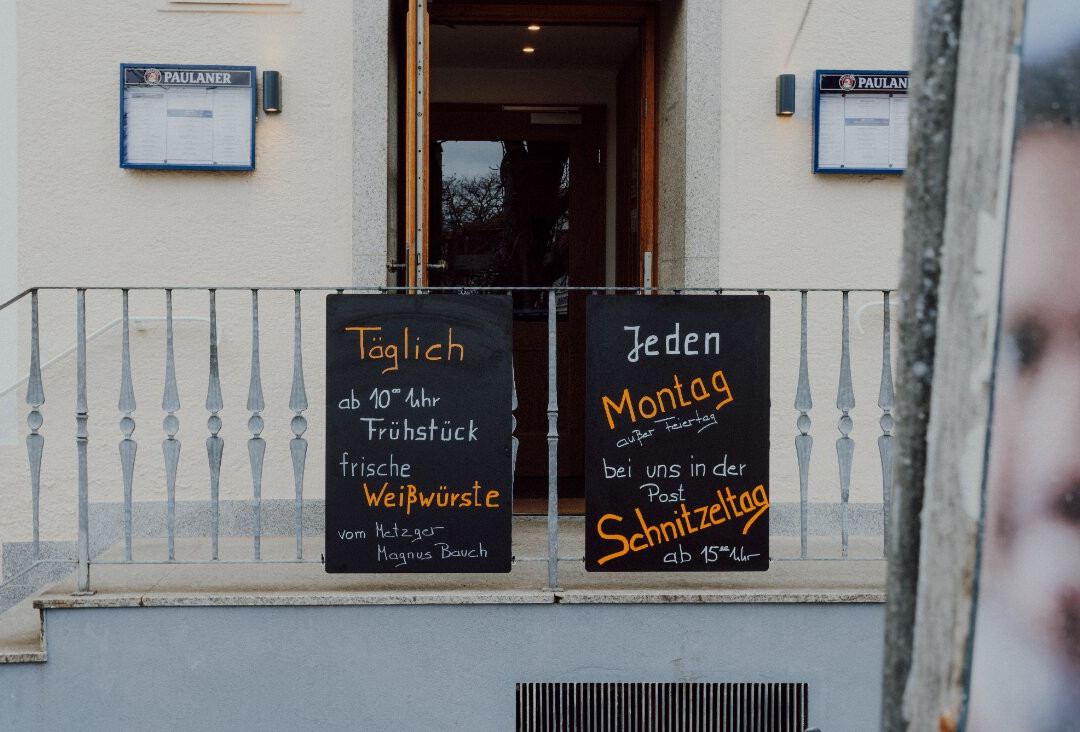 PAULANER
PAULAN
Täglich
ab 10⁰⁰ Uhr
Frühstück
frische
Weißwürste
vom Metzger
Magnus Bauch
Jeden
Montag
außer Feiertag
bei uns in der
Post
Schnitzeltag
ab 15⁰⁰ Uhr